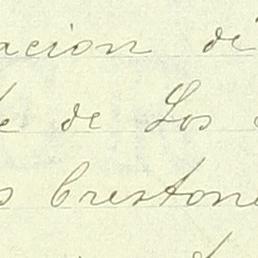 acion di
de Los
s Creston